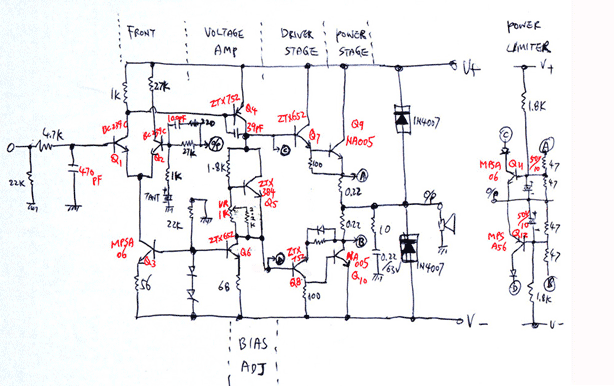 FRONT
VOLTAGE AMP
DRIVER STAGE
POWER STAGE
POWER LIMITER
V+
V+
1K
27K
ZTX752
Q4
39PF
ZTX652
Q7
Q9
NA005
1N4007
1.8K
BC239C
Q1
Q2
100PF
220
27K
O/P
C
100
A
0.22
4.7K
470 PF
22K
1K
TANT
22K
1.8K
ZTX
Q5
VR 1K
2.2K
ZTX652
Q6
68
MPSA 06
Q3
56
ZTX 752
Q8
100
0.22
B
NA 005
Q10
10
0.22 /63V
O/P
1N4007
C
MPSA 06
Q11
A
47
47
O/P
MPS A56
47
47
B
D
1.8K
V-
V-
BIAS ADJ